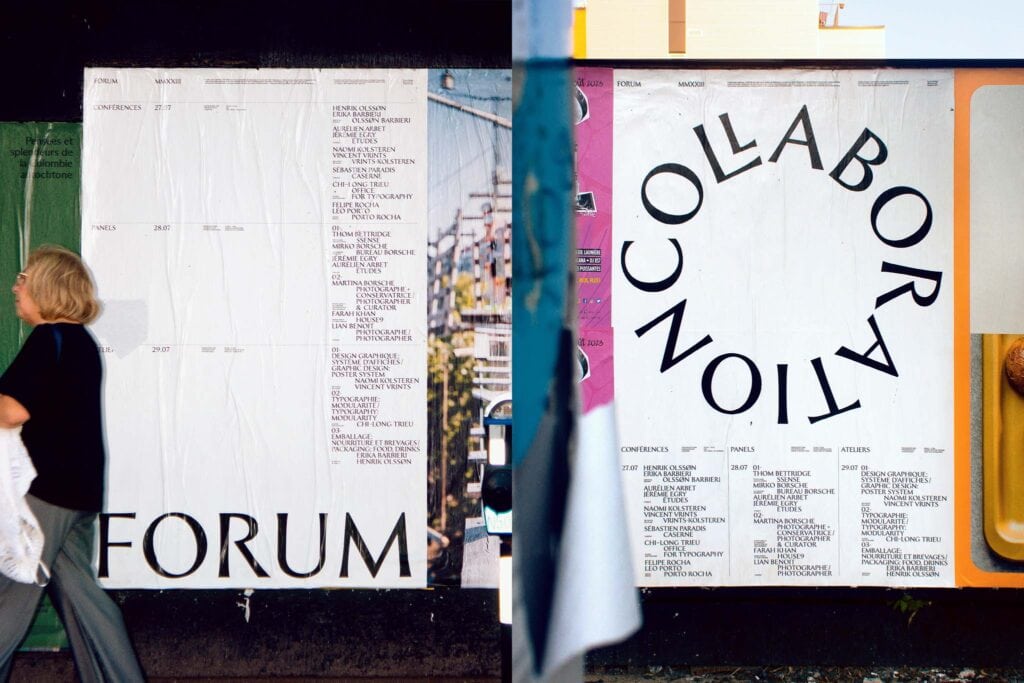 Pensées et
splendeurs de
la Colombie
autochtone
FORUM MMXXIII
CONFÉRENCES 27.07
HENRIK OLSSØN
ERIKA BARBIERI
OLSSØN BARBIERI
AURÉLIEN ARBET
JÉRÉMIE EGRY
ÉTUDES
NAOMI KOLSTEREN
VINCENT VRINTS
VRINTS-KOLSTEREN
SÉBASTIEN PARADIS
CASERNE
CHI-LONG TRIEU
OFFICE
FOR TYPOGRAPHY
FELIPE ROCHA
LEO PORTO
PORTO ROCHA
PANELS 28.07
01-
THOM BETTRIDGE
SSENSE
MIRKO BORSCHE
BUREAU BORSCHE
JÉRÉMIE EGRY
AURÉLIEN ARBET
ÉTUDES
02-
MARTINA BORSCHE
PHOTOGRAPHE +
CONSERVATRICE /
PHOTOGRAPHER
& CURATOR
FARAH KHAN
HOUSE9
LIAN BENOIT
PHOTOGRAPHE /
PHOTOGRAPHER
29.07
01-
DESIGN GRAPHIQUE:
SYSTÈME D'AFFICHES /
GRAPHIC DESIGN:
POSTER SYSTEM
NAOMI KOLSTEREN
VINCENT VRINTS
02-
TYPOGRAPHIE:
MODULARITÉ /
TYPOGRAPHY:
MODULARITY
CHI-LONG TRIEU
03-
EMBALLAGE:
NOURRITURE ET BREVAGES /
PACKAGING: FOOD, DRINKS
ERIKA BARBIERI
HENRIK OLSSØN
FORUM
2023
FORUM MMXXIII
COLLABORATION
CONFÉRENCES PANELS ATELIERS
27.07
HENRIK OLSSØN
ERIKA BARBIERI
OLSSØN BARBIERI
AURÉLIEN ARBET
JÉRÉMIE EGRY
ÉTUDES
NAOMI KOLSTEREN
VINCENT VRINTS
VRINTS-KOLSTEREN
SÉBASTIEN PARADIS
CASERNE
CHI-LONG TRIEU
OFFICE
FOR TYPOGRAPHY
FELIPE ROCHA
LEO PORTO
PORTO ROCHA
28.07 01-
THOM BETTRIDGE
SSENSE
MIRKO BORSCHE
BUREAU BORSCHE
JÉRÉMIE EGRY
AURÉLIEN ARBET
ÉTUDES
02-
MARTINA BORSCHE
PHOTOGRAPHE +
CONSERVATRICE /
PHOTOGRAPHER
& CURATOR
FARAH KHAN
HOUSE9
LIAN BENOIT
PHOTOGRAPHE /
PHOTOGRAPHER
29.07 01-
DESIGN GRAPHIQUE:
SYSTÈME D'AFFICHES /
GRAPHIC DESIGN:
POSTER SYSTEM
NAOMI KOLSTEREN
VINCENT VRINTS
02-
TYPOGRAPHIE:
MODULARITÉ /
TYPOGRAPHY:
MODULARITY
CHI-LONG TRIEU
03-
EMBALLAGE:
NOURRITURE ET BREVAGES /
PACKAGING: FOOD, DRINKS
ERIKA BARBIERI
HENRIK OLSSØN